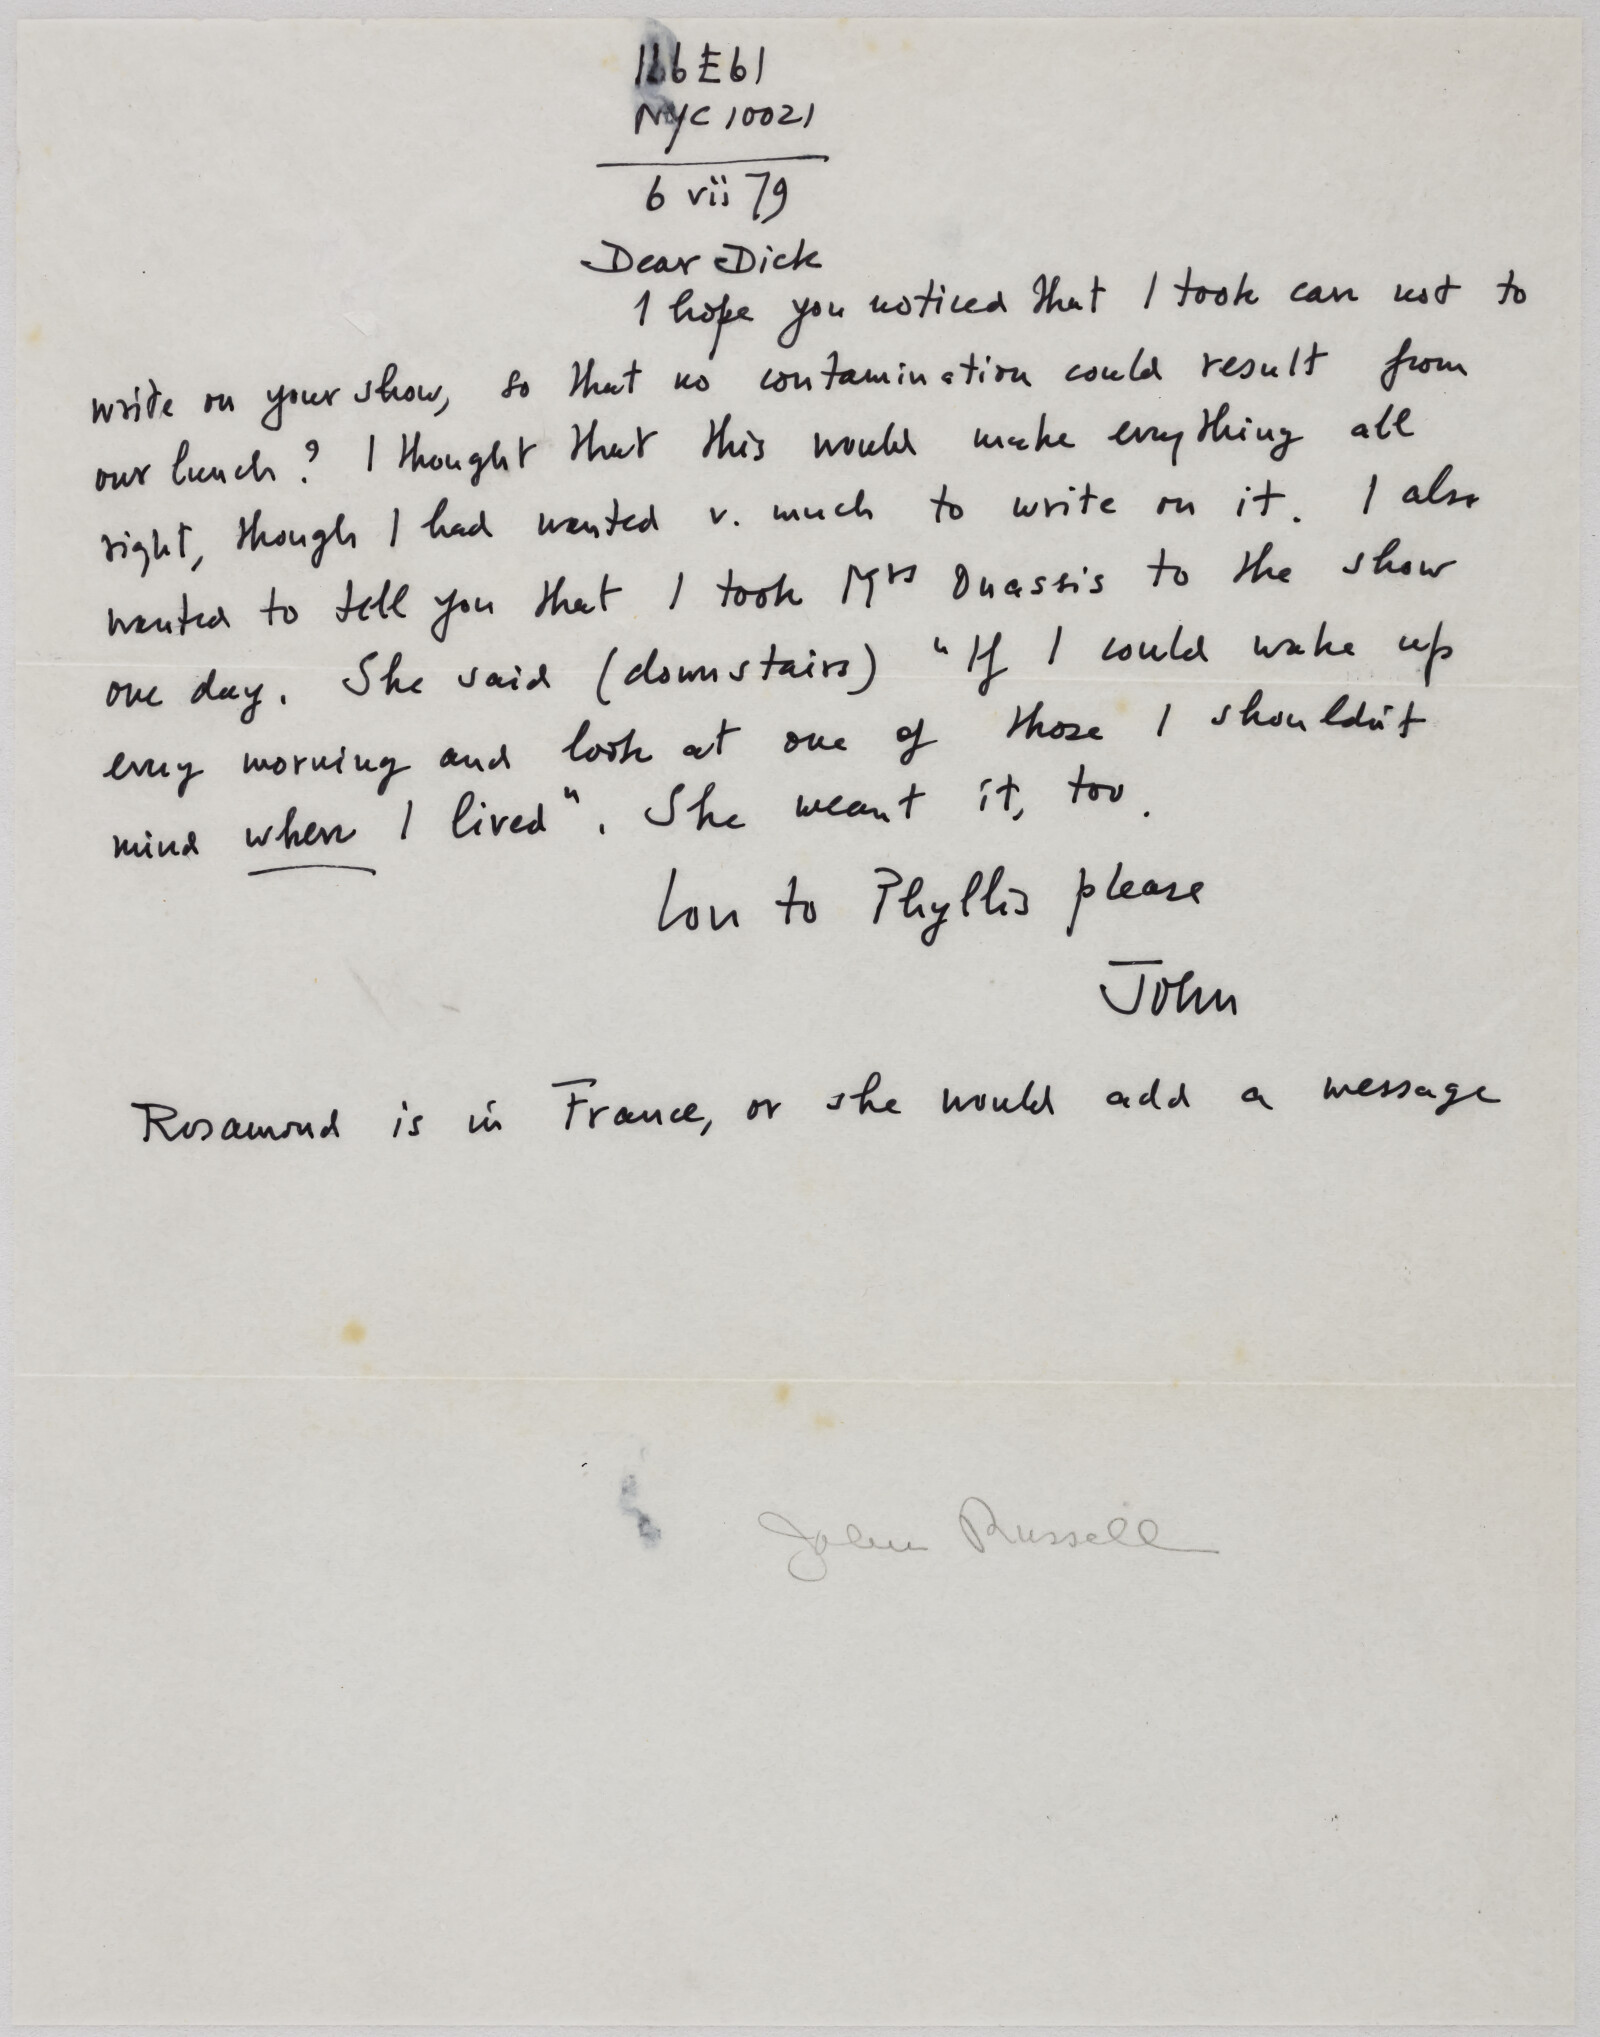 166 E 61
NYC 10021
6 vii 79
Dear Dick
I hope you noticed that I took care not to
write on your show, so that no contamination could result from
our lunch? I thought that this would make everything all
right, though I had wanted v. much to write on it. I also
wanted to tell you that I took Mrs Onassis to the show
one day. She said (downstairs) "If I could wake up
every morning and look at one of those I shouldn't
mind where I lived". She meant it, too.
Love to Phyllis please
John
Rosamond is in France, or she would add a message
John Russell